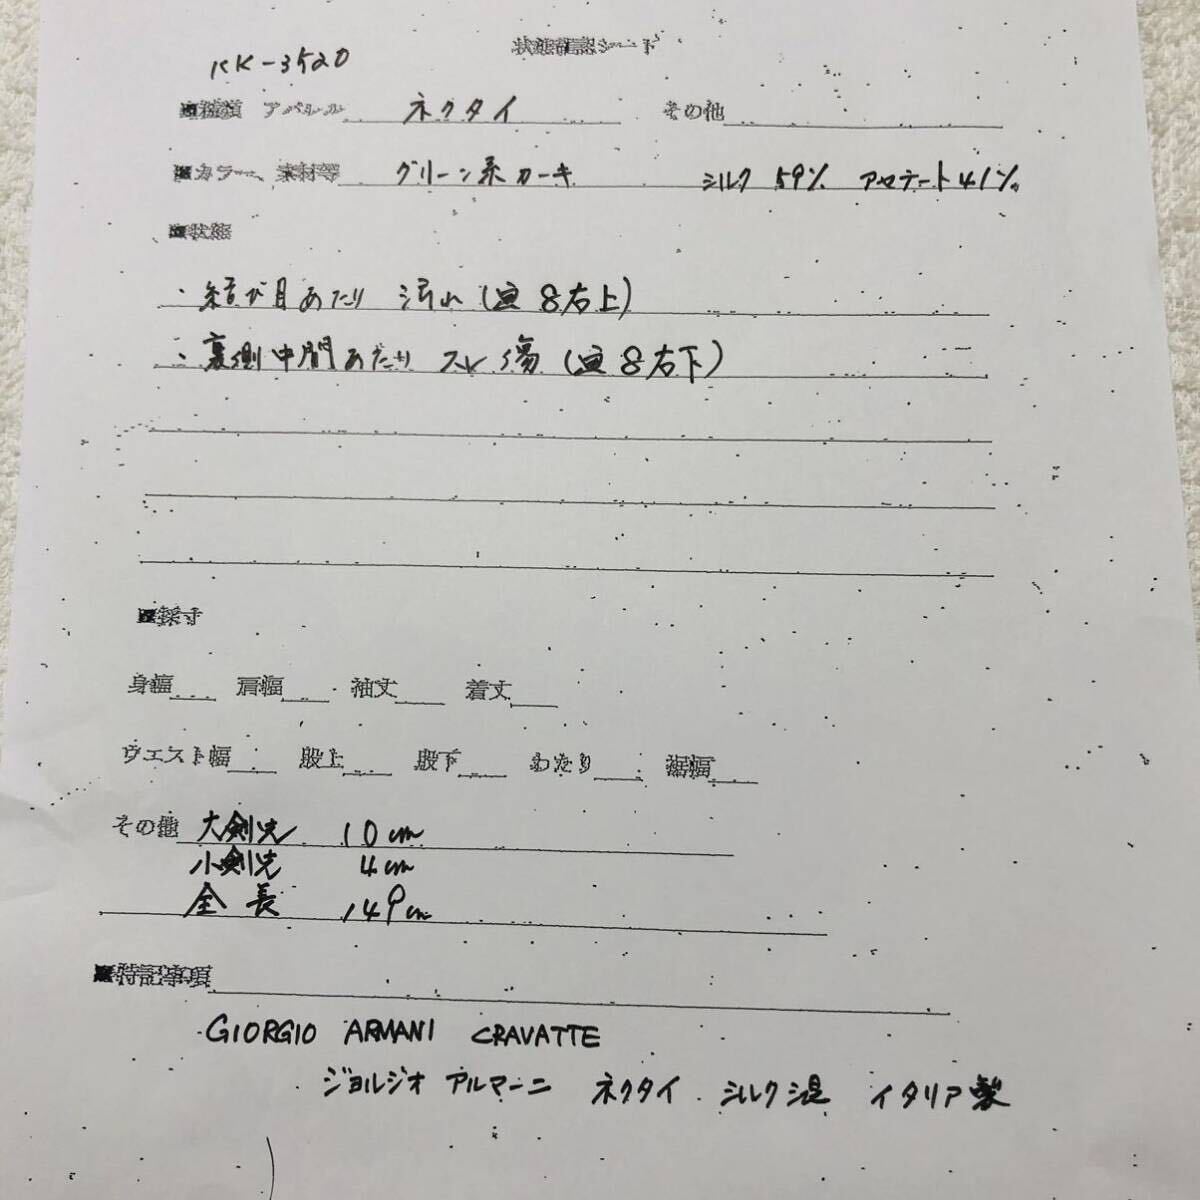 状態確認シート
KK-3520
■種類 アパレル ネクタイ その他
■カラー、素材等 グリーン系カーキ シルク 59% アセテート41%
■状態
・結び目あたり 汚れ(画8右上)
・裏側中間あたり スレ傷(画8右下)
■採寸
身幅 肩幅 袖丈 着丈
ウエスト幅 股上 股下 わたり 裾幅
その他 大剣先 10cm
小剣先 4cm
全長 149cm
■特記事項
GIORGIO ARMANI CRAVATTE
ジョルジオ アルマーニ ネクタイ シルク混 イタリア製